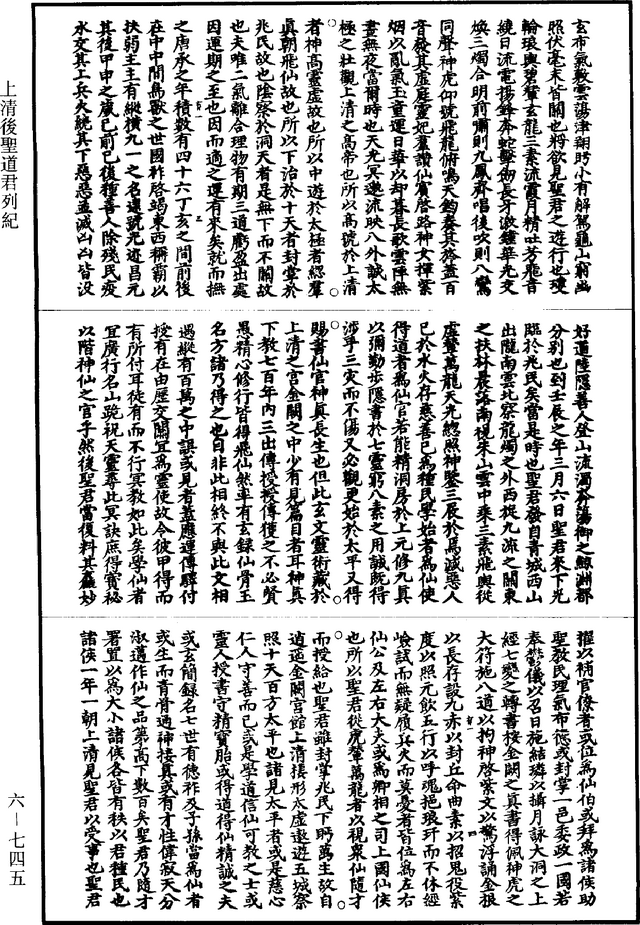 上清後聖道君列紀
六—七四五
玄布氣敷雲蕩津翔眄小有解駕龜山窮幽
照伏毫末皆闚也將欲見聖君之遊行也瓊
輪琅輿碧輦玄龍三素流霞月精吐芳飛音
繞日流電揚鋒奔蛇擊劒長牙激鍾華光交
煥三燭合明前嘯則九鳳齊唱後吹則八鸞
同聲神虎仰號飛龍俯鳴天鈞奏其旍蓋百
音發其虛庭靈妃羣讚仙賓啓路神丈揮紫
烟以亂氣玉童運日華以却暮長歌雲阵無
晝無夜當爾時也天光冥邀流映八外誠太
極之壯觀上清之高帝也所以高號於上清
者神高靈虛故也所以中遊於太極者總羣
真朝飛仙故也所以下治於十天者封掌於
兆民故也陰察於洞天者是無下而不關故
也夫唯二氣離合理物有期三道虧盈出處
因運期之至也因而適之運有來矣就而撫
之唐承之年積數有四十六丁亥之間前後
在中中間為獸之世國祚啓竭東西稱霸以
扶弱主主有縱橫九一之名連號光迹昌元
其後甲申之歲已前已後種善人除殘民疫
水交其上兵火繞其下惡惡並滅凶凶皆沒
好道陸隱善人登山流濁奔蕩御之鯨淵都
分別也到壬辰之年三月六日聖君來下光
臨於兆民矣當是時也聖君發自青城西山
出隴南雲北察龍燭之外西捉九流之關東
之扶林晨落南視朱山雲中乘三素飛輿從
虛輦萬龍天光總照神鑒三辰於焉滅惡人
已於水火存慈善已為種民學始者為仙使
得道者為仙官若能精洞房於上元修九真
以彌勤步隱書於七靈窮八素之用誠既得
涉乎三灾而不傷又必觀更始於太平又得
賜書仙官神真長生也但此玄文靈術藏於
上清之宮金闕之中少有見篇目者耳神真
下教七百年內三出傳授授傳獲之不必賢
愚精心修行皆得飛仙然率有玄錄仙骨玉
名方諸乃得之也自非此相終不與此文相
遇縱有百萬之中誤或見者蓋應運傳驛付
授有在由歷交關冝為靈使故令彼甲得而
有所付耳徒有而不行冥教如此矣學仙者
冝廣行名山跪祝天靈尋此冥訣庶得寳秘
以階神仙之官乎然後聖君當復料其麤妙
擢以補官僚者或位為仙伯或拜為諸侯助
聖教民理氣布德或封掌一邑委政一國若
奉鬱儀以召日施結璘以攝月詠大洞之上
經七變之轉書按金闕之真書得佩神虎之
大符施八道以拘神啓紫文以驚浮誦金根
以長存設九赤以封丘命曲素以招鬼役紫
度以照元飲五行以呼魂挹琅玕而不休經
嶮試而無疑履兵火而莫憂者皆位為左右
仙公及左右大夫或為卿相之司上國仙侯
也所以聖君從虎輦萬龍者以視衆仙隨才
而授給也聖君雖封掌兆民下眄萬生故自
逍遥金闕宮館上清接形太虛遨遊五城察
照十天百方太平也諸見太平者或是慈心
仁人守善而已或是學道信仙可教之士或
靈人授書守精寶胎或得道得仙精誠之夫
或玄簡錄名七世有德祚及子孫當為仙者
或生而青骨通神接真或有才性偉寂天分
淑邁作仙之品第高下數百矣聖君乃隨才
署置以為大小諸侯各皆有秩以君種民也
諸侯一年一朝上清見聖君以受事也聖君